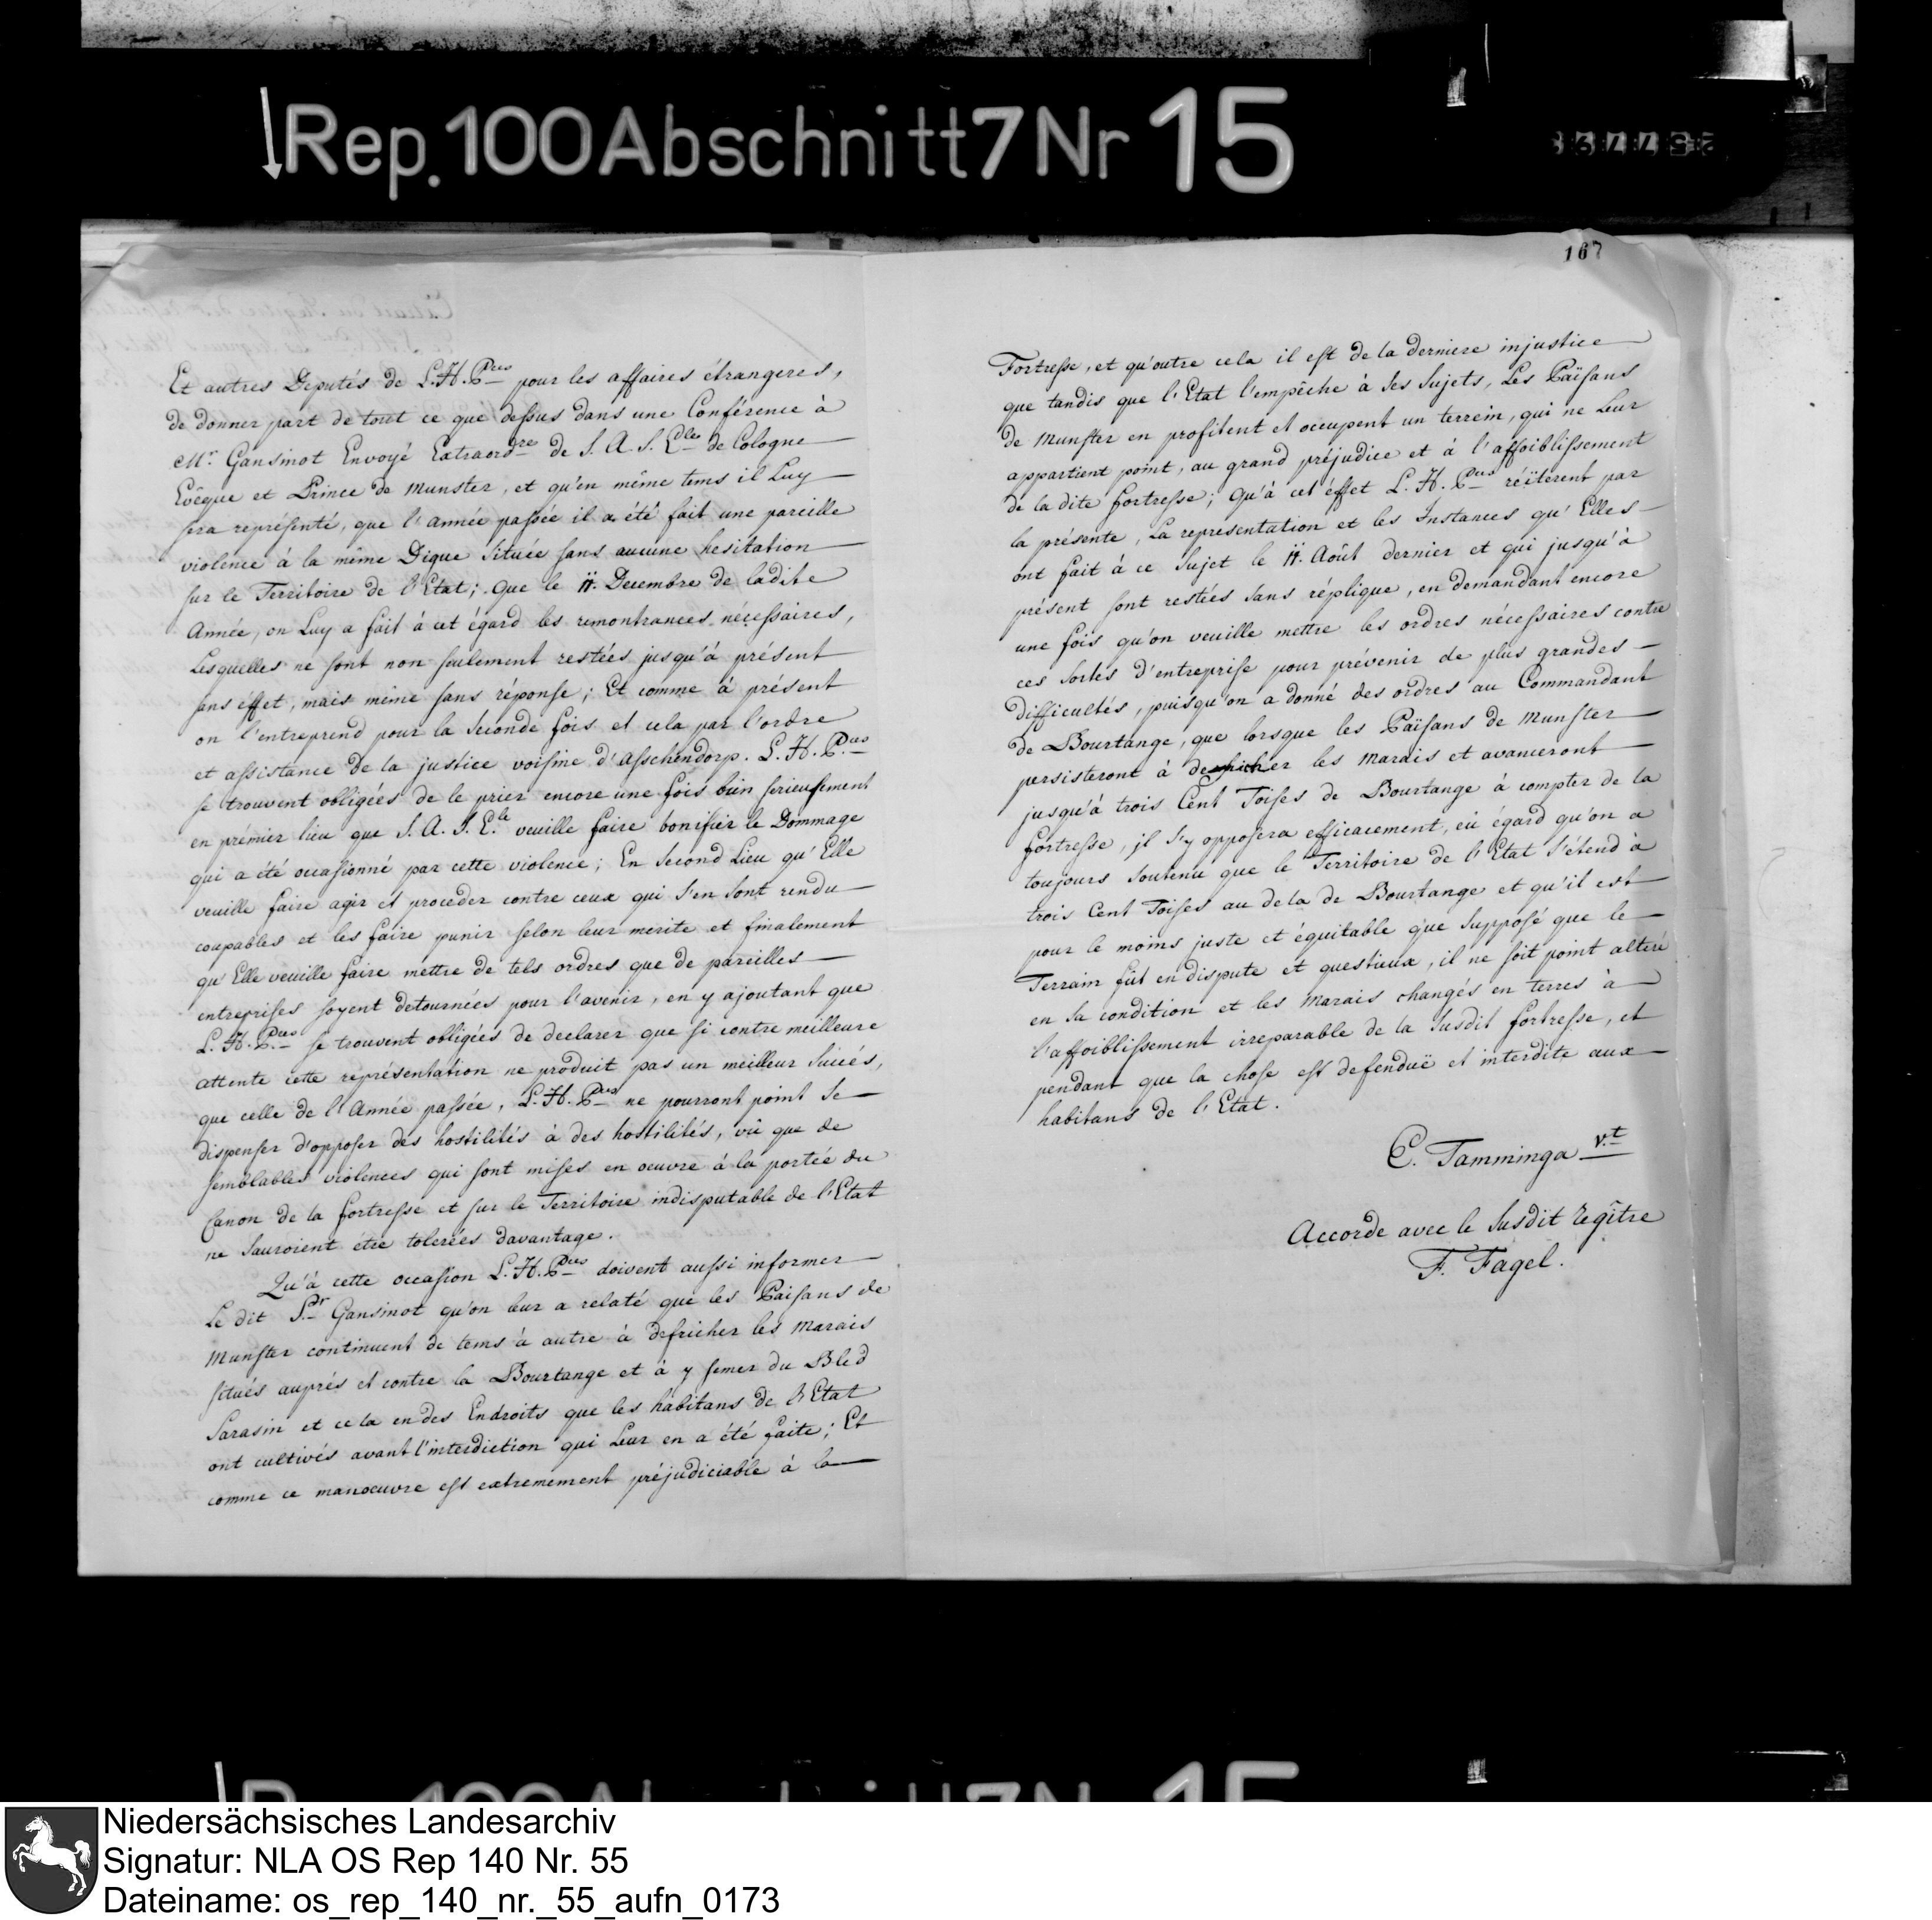 Rep. 100 Abschnitt 7 Nr 15
167
Et autres Deputés de L. H. Pces pour les affaires étrangeres,
de donner part de tout ce que dessus dans une Conférence à
Mr. Gansinot Envoyé Extraordre de S. A. S. Ele de Cologne
Evêque et Prince de Munster, et qu'en même tems il Luy
sera représenté, que l'année passée il a été fait une pareille
violence à la même Digue située sans aucune hesitation
sur le Territoire de l'Etat; Que le 11. Decembre de ladite
Année, on Luy a fait à cet égard les remontrances nécessaires,
Lesquelles ne sont non seulement restées jusqu'à présent
sans éffet, mais même sans réponse; Et comme à présent
on l'entreprend pour la seconde fois et cela par l'ordre
et assistance de la justice voisine d'Asschendorp. L. H. Pces
se trouvent obligées de le prier encore une fois bien serieusement
en prémier lieu que S. A. S. E.le veuille faire bonifier le Dommage
qui a été occasionné par cette violence; En Second Lieu qu'Elle
veuille faire agir et proceder contre ceux qui s'en sont rendu
coupables et les faire punir selon leur merite et finalement
qu'Elle veuille faire mettre de tels ordres que de pareilles
entreprises soyent detournées pour l'avenir, en y ajoutant que
L. H. Pces se trouvent obligées de declarer que si contre meilleure
attente cette représentation ne produit pas un meilleur Succés,
que celle de l'Année passée, L. H. Pces ne pourront point se
dispenser d'opposer des hostilités à des hostilités, vû que de
semblables violences qui sont mises en oeuvre à la portée du
Canon de la fortresse et sur le Territoire indisputable de l'Etat
ne sauroient étre tolerées davantage.
Qu'à cette occasion L. H. Pces doivent aussi informer
Le dit Sr Gansinot qu'on leur a relaté que les Païsans de
Munster continuent de tems à autre à defricher les Marais
situés auprés et contre la Bourtange et à y semer du Bled
Sarasin et cela en des Endroits que les habitans de l'Etat
ont cultivés avant l'interdiction qui Leur en a été faite; Et
comme ce manoeuvre est extremement préjudiciable à la
Fortresse, et qu'outre cela il est de la derniere injustice
que tandis que l'Etat l'empêche à ses Sujets, Les Païsans
de Munster en profitent et occupent un terrein, qui ne Leur
appartient point, au grand préjudice et à l'affoiblissement
de la dite fortresse; Qu'à cet éffet L. H. Pces réïterent par
la présente, La representation et les Instances qu'Elles
ont fait à ce Sujet le 11. Août dernier et qui jusqu'à
présent sont restées sans réplique, en demandant encore
une fois qu'on veuille mettre les ordres nécessaires contre
ces sortes d'entreprise pour prévenir de plus grandes
difficultés, puisqu'on a donné des ordres au Commandant
de Bourtange, que lorsque les Païsans de Munster
persisteront à defricher les Marais et avanceront
jusqu'à trois Cent Toises de Bourtange à compter de la
fortresse, il s'y opposera efficacement, eù égard qu'on a
toujours soutenu que le Territoire de l'Etat s'étend à
trois Cent Toises au dela de Bourtange et qu'il est
pour le moins juste et équitable que supposé que le
Terrain fût en dispute et questieux, il ne soit point alteré
en sa condition et les Marais changés en terres à
l'affoiblissement irreparable de la Susdit fortresse, et
pendant que la chose est defenduë et interdite aux
habitans de l'Etat.
E. Tamminga v.t
Accorde avec le Susdit Regître
F. Fagel.
Niedersächsisches Landesarchiv
Signatur: NLA OS Rep 140 Nr. 55
Dateiname: os_rep_140_nr._55_aufn_0173